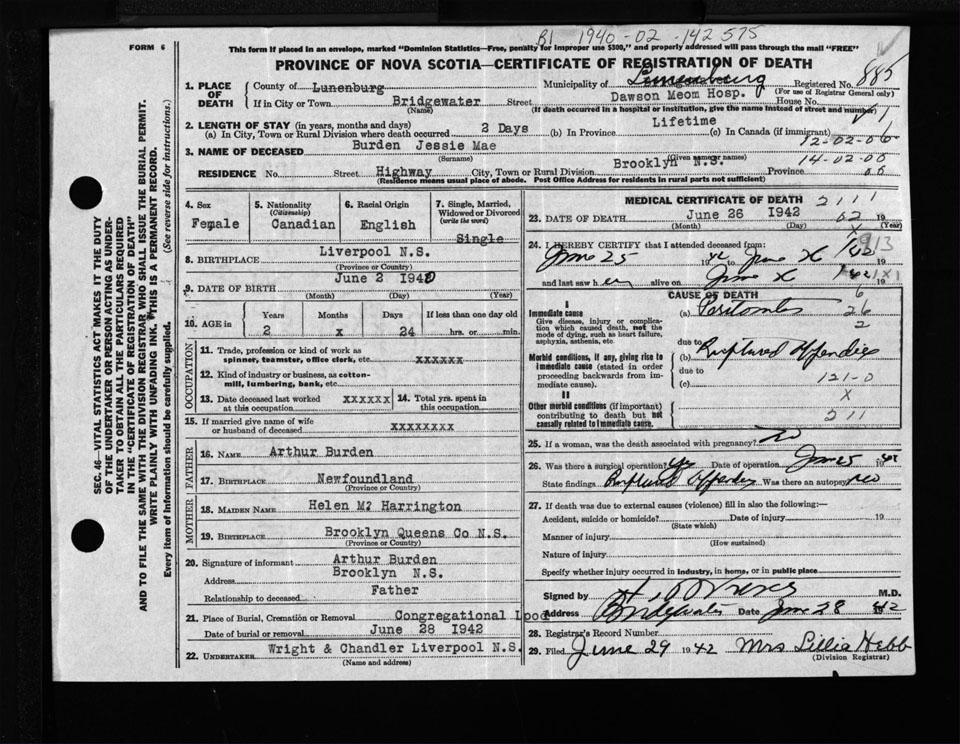 B1 1940-02-142575
FORM 6
This form if placed in an envelope, marked "Dominion Statistics—Free, penalty for improper use $300," and properly addressed will pass through the mail "FREE"
PROVINCE OF NOVA SCOTIA—CERTIFICATE OF REGISTRATION OF DEATH
SEC. 46—VITAL STATISTICS ACT MAKES IT THE DUTY
OF THE UNDERTAKER OR PERSON ACTING AS UNDER-
TAKER TO OBTAIN ALL THE PARTICULARS REQUIRED
IN THE "CERTIFICATE OF REGISTRATION OF DEATH"
AND TO FILE THE SAME WITH THE DIVISION REGISTRAR WHO SHALL ISSUE THE BURIAL PERMIT.
WRITE PLAINLY WITH UNFADING INK. THIS IS A PERMANENT RECORD.
Every item of Information should be carefully supplied. (See reverse side for instructions.)
1. PLACE OF DEATH County of Lunenburg Municipality of Lunenburg Registered No. 885
(For use of Registrar General only)
If in City or Town Bridgewater Street Dawson Meom Hosp. House No.
(Name) (If death occurred in a hospital or institution, give the name instead of street and number)
2. LENGTH OF STAY (in years, months and days)
(a) In City, Town or Rural Division where death occurred 2 Days (b) In Province Lifetime (c) In Canada (if immigrant)
12-02-06
3. NAME OF DECEASED Burden Jessie Mae
(Surname) (Given name or names)
14-02-00
RESIDENCE No. Street Highway City, Town or Rural Division Brooklyn N.S. Province
(Residence means usual place of abode. Post Office Address for residents in rural parts not sufficient)
4. Sex
Female
5. Nationality
(Citizenship)
Canadian
6. Racial Origin
English
7. Single, Married,
Widowed or Divorced
(write the word)
Single
8. BIRTHPLACE Liverpool N.S.
(Province or Country)
9. DATE OF BIRTH June 2 1940
(Month) (Day) (Year)
10. AGE in Years Months Days If less than one day old
2 x 24 hrs. or min.
OCCUPATION
11. Trade, profession or kind of work as
spinner, teamster, office clerk, etc. xxxxxx
12. Kind of industry or business, as cotton-
mill, lumbering, bank, etc.
13. Date deceased last worked
at this occupation xxxxxx
14. Total yrs. spent in
this occupation
15. If married give name of wife
or husband of deceased xxxxxxxx
FATHER
16. NAME Arthur Burden
17. BIRTHPLACE Newfoundland
(Province or Country)
MOTHER
18. MAIDEN NAME Helen M. Harrington
19. BIRTHPLACE Brooklyn Queens Co N.S.
(Province or Country)
20. Signature of informant Arthur Burden
Address Brooklyn N.S.
Relationship to deceased Father
21. Place of Burial, Cremation or Removal Congregational Lpool
Date of burial or removal June 28 1942
22. UNDERTAKER Wright & Chandler Liverpool N.S.
(Name and address)
MEDICAL CERTIFICATE OF DEATH 2111
23. DATE OF DEATH June 26 1942 19
(Month) (Day) (Year)
24. I HEREBY CERTIFY that I attended deceased from:
June 25 1942 to June X 19
and last saw her alive on June X 19
CAUSE OF DEATH
I
Immediate cause
Give disease, injury or complica-
tion which caused death, not the
mode of dying, such as heart failure,
asphyxia, asthenia, etc.
(a) Peritonitis
26
2
due to
Morbid conditions, if any, giving rise to
immediate cause (stated in order
proceeding backwards from im-
mediate cause).
(b) Ruptured Appendix
due to
(c)
121-0
x
II
Other morbid conditions (if important)
contributing to death but not
causally related to immediate cause.
211
25. If a woman, was the death associated with pregnancy? no
26. Was there a surgical operation? yes Date of operation June 25 1942
State findings Ruptured Appendix Was there an autopsy? no
27. If death was due to external causes (violence) fill in also the following:—
Accident, suicide or homicide? Date of injury 19
(State which)
Manner of injury
(How sustained)
Nature of injury
Specify whether injury occurred in industry, in home, or in public place
Signed by M.D.
Address Bridgewater Date June 28 1942
28. Registrar's Record Number
29. Filed June 29 1942 Mrs Lillia Hebb
(Division Registrar)